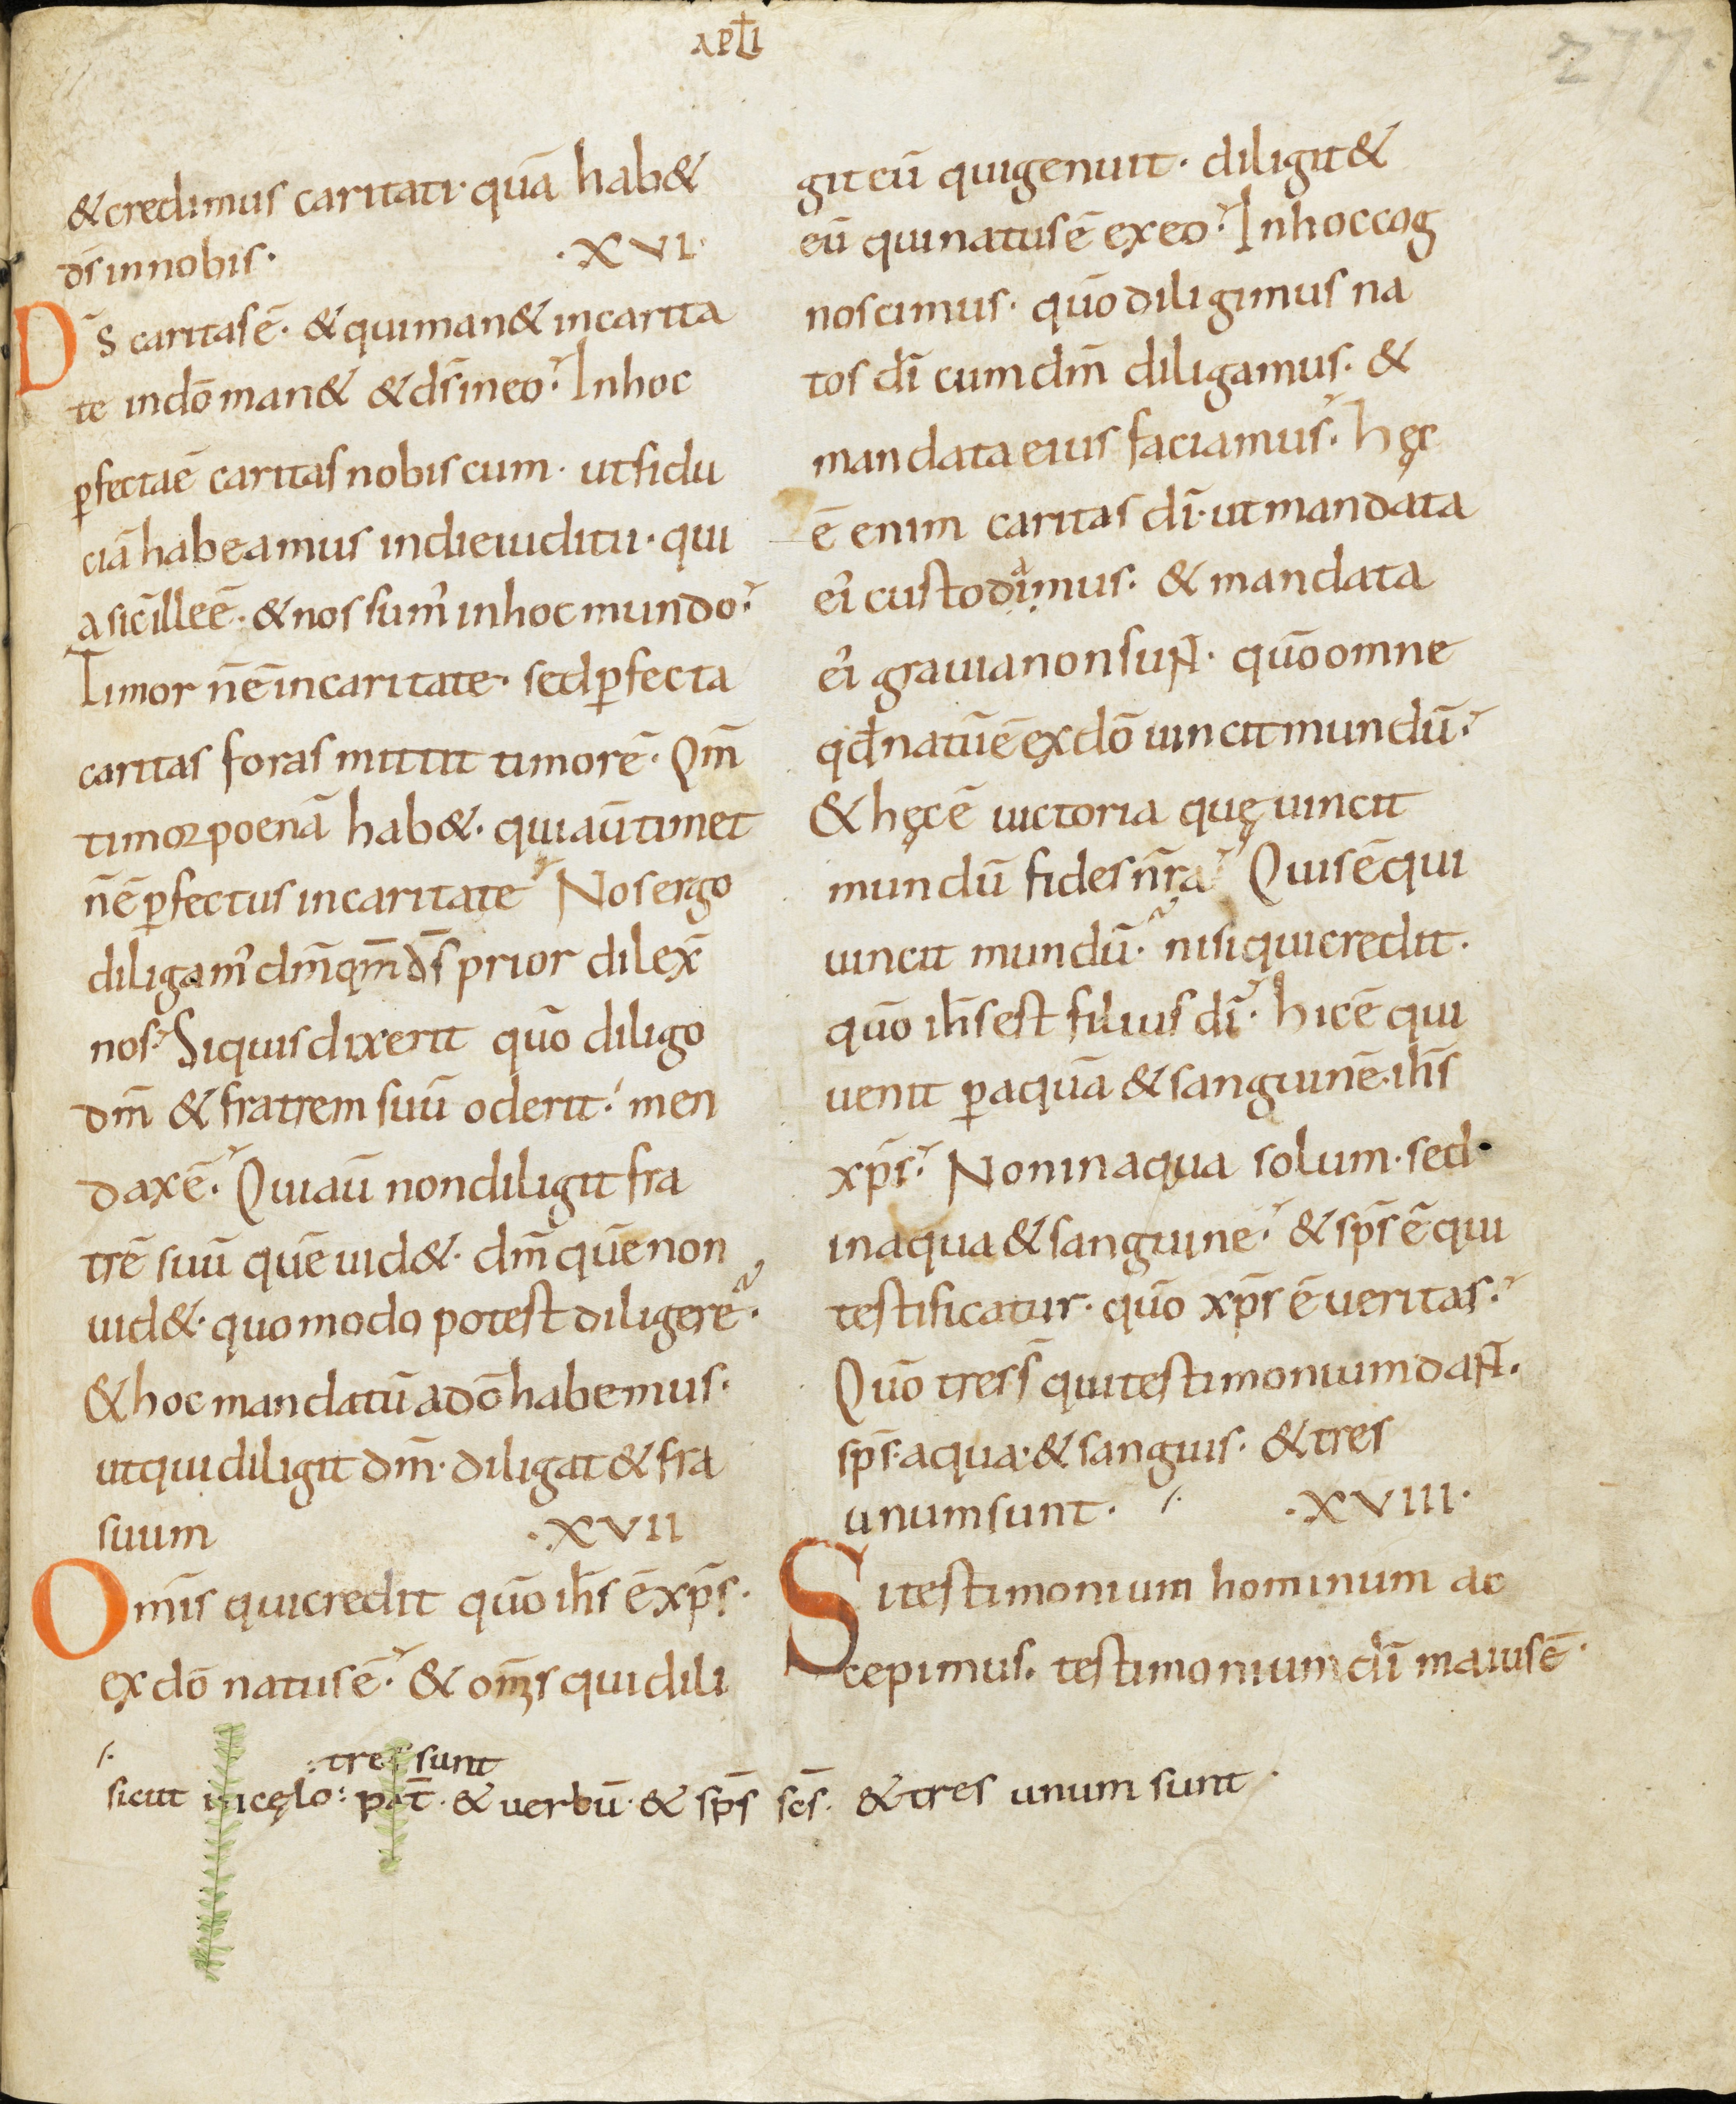 apłi
277.
& credimus caritati· quā hab&
d̄s in nobis· ·XVI·
D̄s caritas ē· & qui man& in carita
te in dō man& & d̄s in eo·́ In hoc
ꝑfecta ē caritas nobiscum· ut fidu
ciā habeamus in die iuditii· qui
a sic ille ē· & nos sumꝰ in hoc mundo·́
Timor n̄ ē in caritate· sed ꝑfecta
caritas foras mittit timorē· Qm̄
timor poenā hab&· qui aū timet
n̄ ē ꝑfectus in caritate·́ Nos ergo
diligamꝰ dm̄ qm̄ d̄s prior dilex̄
nos·́ Si quis dixerit quō diligo
dm̄ & fratrem suū oderit·́ men
dax ē·́ Qui aū non diligit fra
trē suū quē uid&· dm̄ quē non
uid&· quomodo potest diligere·̃
& hoc mandatū a dō habemus·
ut qui diligit dm̄· diligat & fra
suum ·XVII
Om̄is qui credit quō ih̄s ē xp̄s·
ex dō natus ē·́ & om̄s qui dili
git eū qui genuit· diligit &
eū qui natus ē ex eo·́ In hoc cog
noscimus· quō diligimus na
tos dī cum dm̄ diligamus· &
mandata eius faciamus·́ Hęc
ē enim caritas dī· ut mandata
eiꝰ custodiamus· & mandata
eiꝰ grauia non sunt· quō omne
qd̄ natū ē ex dō uincit mundū·́
& hęc ē uictoria quę uincit
mundū fides nr̄a·́ Quis ē qui
uincit mundū·̃ nisi qui credit·
quō ih̄s est filius dī·́ hic ē qui
uenit ꝑ aquā & sanguinē· ih̄s
xp̄s·́ Non in aqua solum· sed·
in aqua & sanguine·́ & sp̄s ē qui
testificatur· quō xp̄s ē ueritas·́
Quō tres s̄ qui testimonium dant·
sp̄s· aqua· & sanguis· & tres
unum sunt· /· ·XVIII·
Si testimonium hominum ac
cepimus· testimonium dī maius ē·
/· : tres sunt
sicut in cęlo : pat̄· & uerbū· & sp̄s sc̄s· & tres unum sunt·